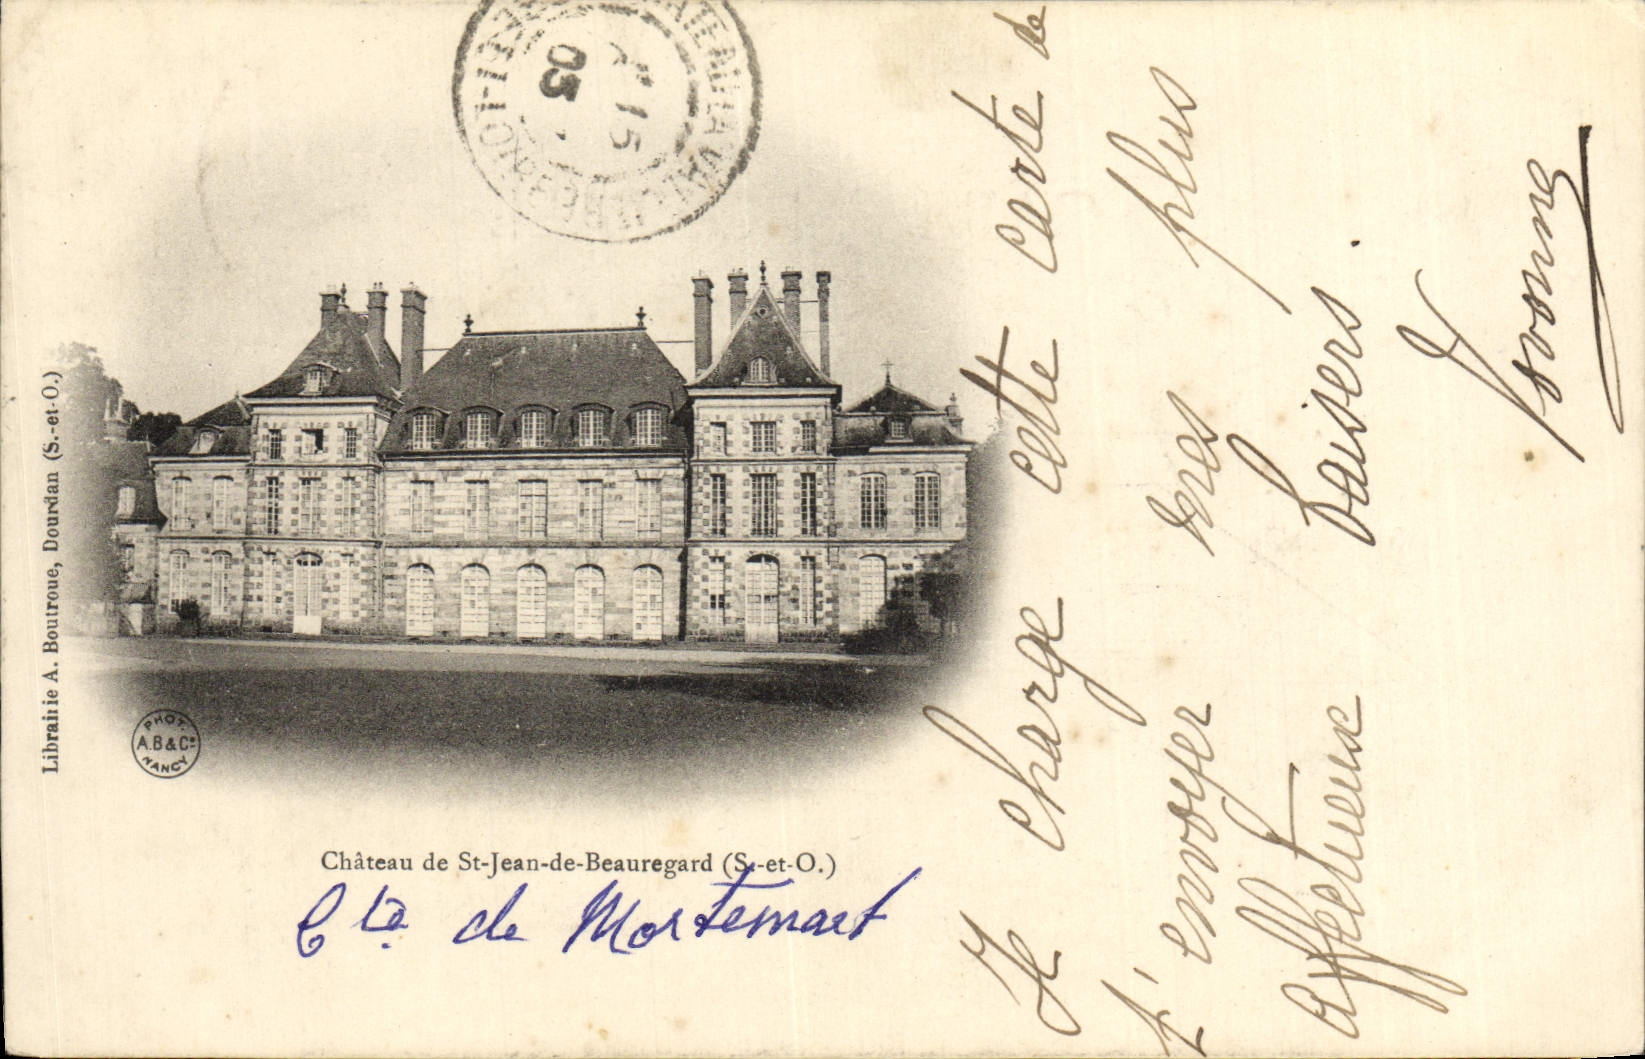 03
15
Librairie A. Boutroue, Dourdan (S.-et-O.)
PHOT.
A.B & Cie
NANCY
Château de St-Jean-de-Beauregard (S.-et-O.)
Cte de Mortemart
Je charge cette carte de
t'envoyer mes plus
affectueux baisers.
Yvonne